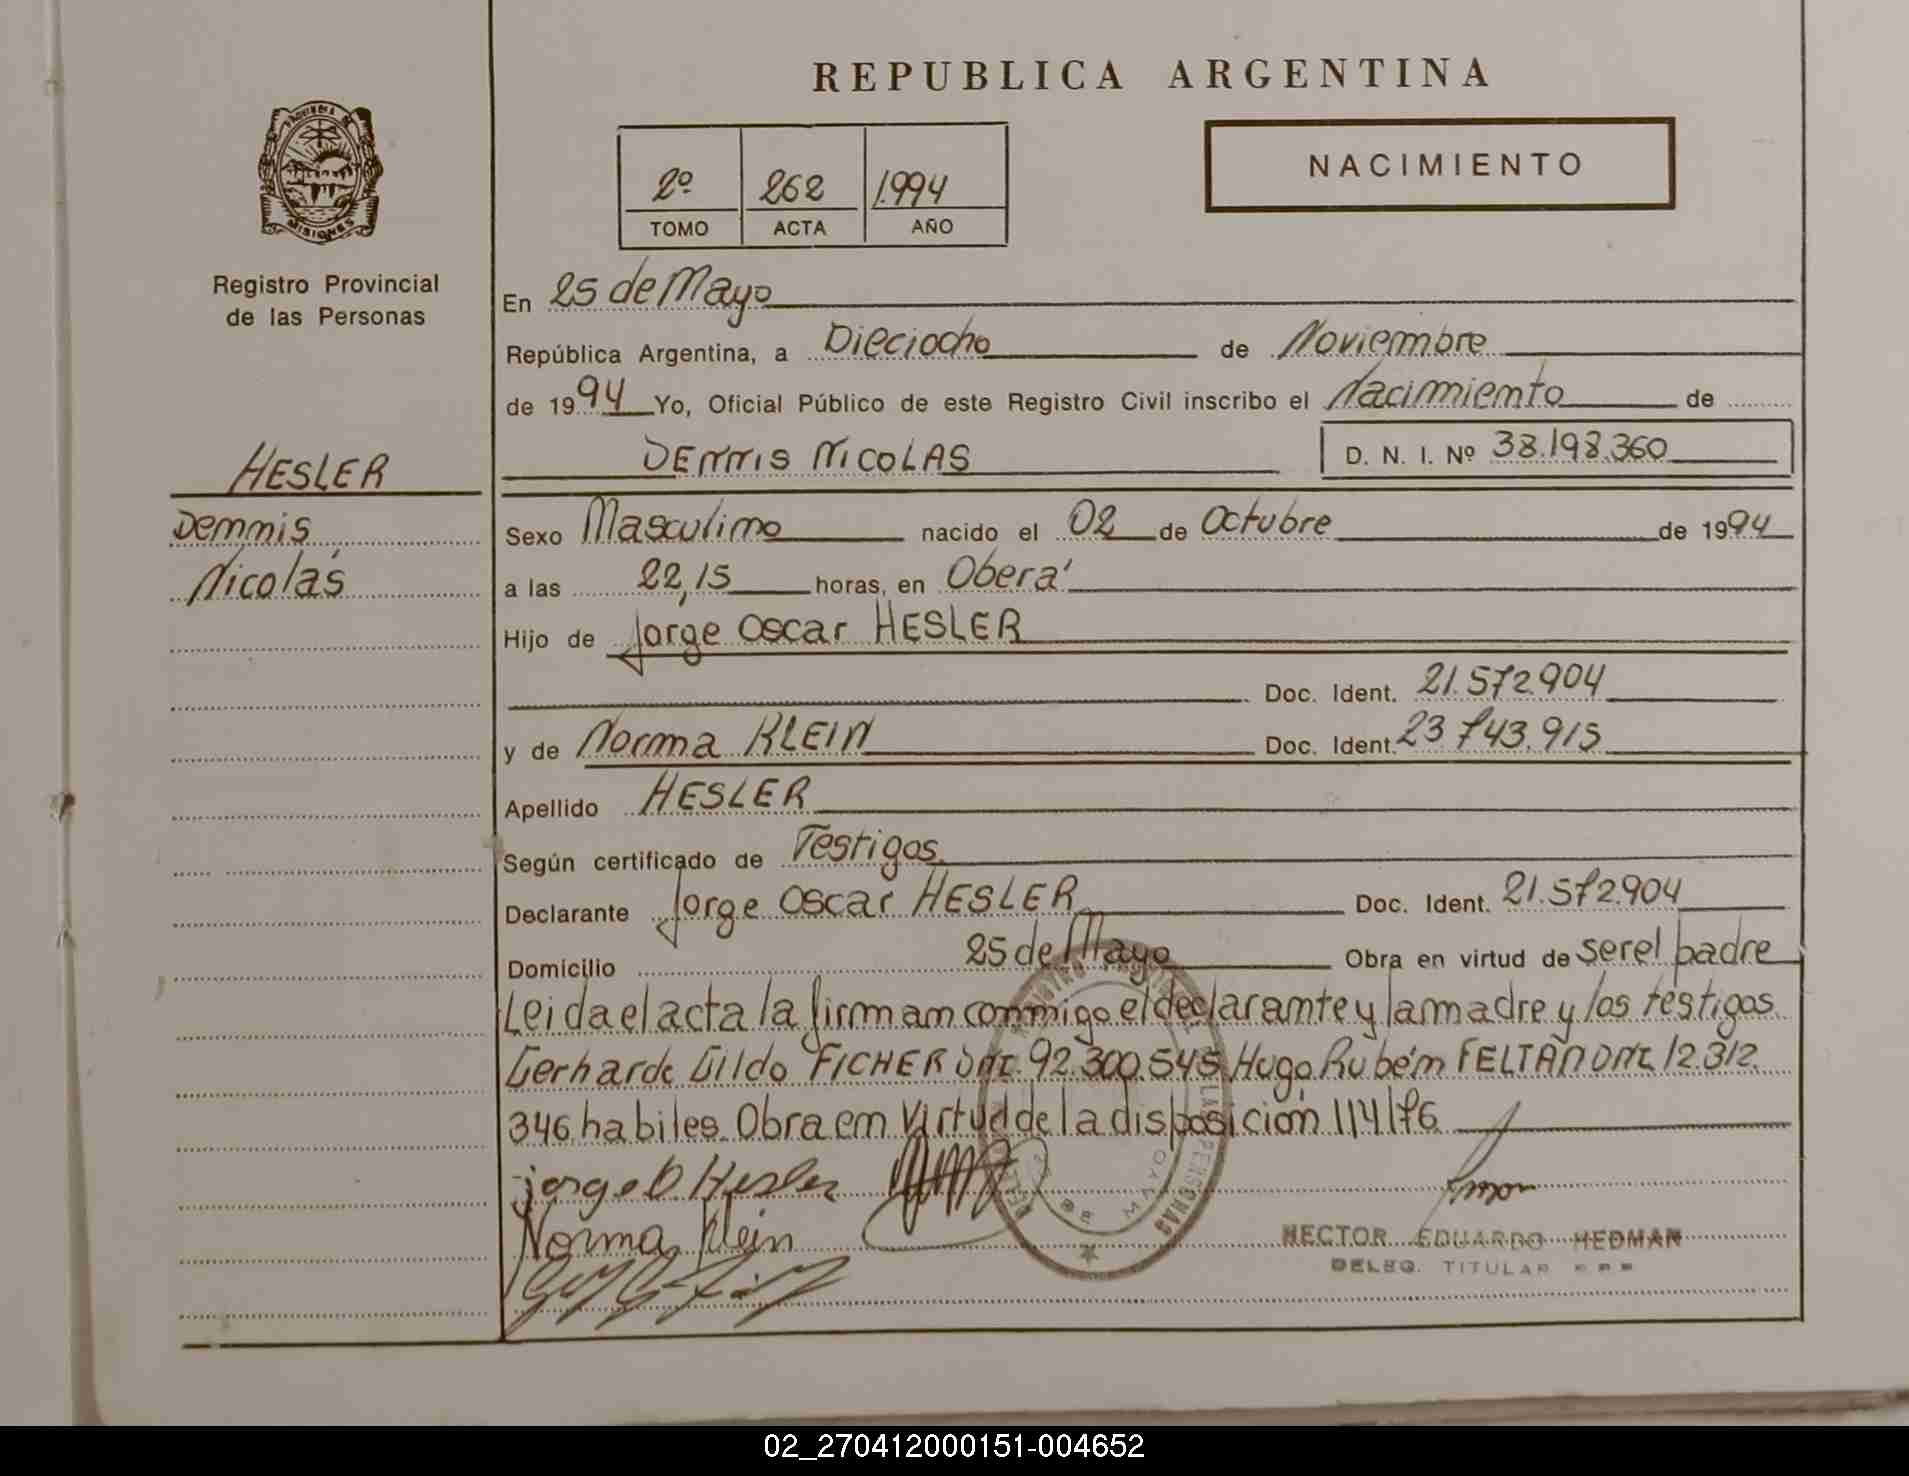 REPUBLICA ARGENTINA
PROVINCIA DE
MISIONES
Registro Provincial
de las Personas
2º 262 1.994
TOMO ACTA AÑO
NACIMIENTO
En 25 de Mayo
República Argentina, a Dieciocho de Noviembre
de 1994 Yo, Oficial Público de este Registro Civil inscribo el Nacimiento de
DENNIS NICOLAS D. N. I. Nº 38.198.360
HESLER
Dennis
Nicolás
Sexo Masculino nacido el 02 de Octubre de 1994
a las 22,15 horas, en Oberá
Hijo de Jorge Oscar HESLER
Doc. Ident. 21.572.904
y de Norma KLEIN Doc. Ident. 23.743.915
Apellido HESLER
Según certificado de Testigos
Declarante Jorge Oscar HESLER Doc. Ident. 21.572.904
Domicilio 25 de Mayo Obra en virtud de ser el padre
Leida el acta la firman conmigo el declarante y la madre y los testigos
Gerhardo Gildo FICHER DNI. 92.300.545 Hugo Rubén FELTAN DNI. 12.312.
346 habiles. Obra en virtud de la disposición 114/76
jorge O Hesler
Norma Klein
HECTOR EDUARDO HEDMAN
DELEG. TITULAR
02_270412000151-004652